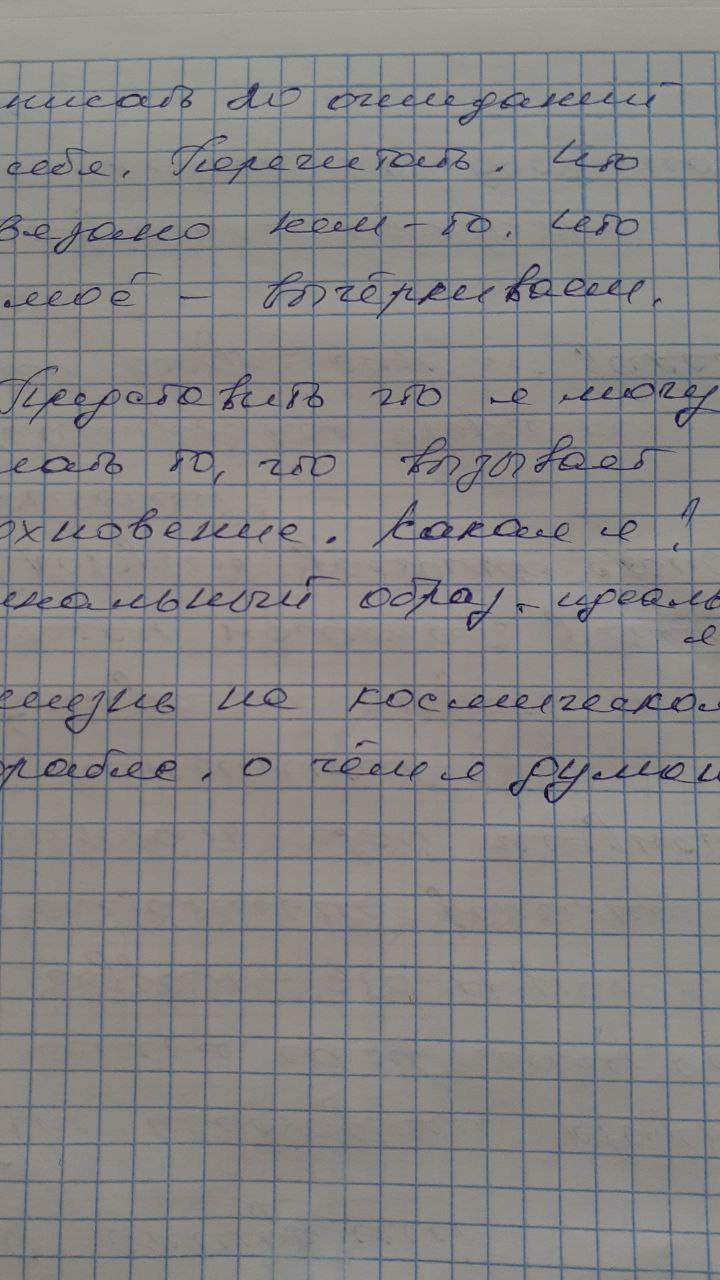 писать 20 ожиданий
себя. Перечитать. Что
вязано кем-то. Что
моё - вычёркиваем.
Представить что я могу
лать то, что вызывает
охновение. Какая я?
икальный образ. идеаль
я
жизнь на космическом
рабле. о чём я думаю